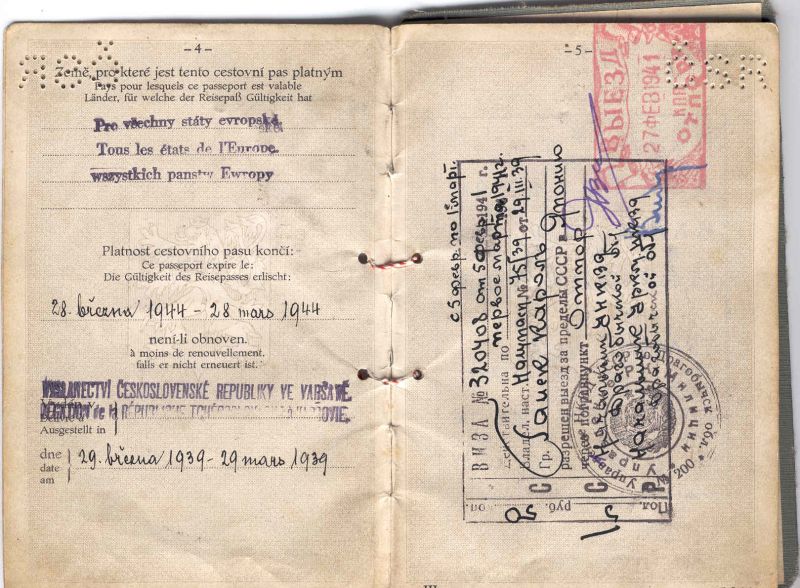 – 4 –
Země, pro které jest tento cestovní pas platným
Pays pour lesquels ce passeport est valable
Länder, für welche der Reisepaß Gültigkeit hat
Pro všechny státy evropské.
Tous les états de l'Europe.
wszystkich państw Ewropy
Platnost cestovního pasu končí:
Ce passeport expire le:
Die Gültigkeit des Reisepasses erlischt:
28. března 1944 - 28 mars 1944
není-li obnoven.
à moins de renouvellement.
falls er nicht erneuert ist.
VYSLANECTVÍ ČESKOSLOVENSKÉ REPUBLIKY VE VARŠAVĚ.
LEGATION de la RÉPUBLIQUE TCHÉCOSLOVAQUE À VARSOVIE.
Ausgestellt in
dne
date
am
29. března 1939 - 29 mars 1939
– 5 –
ВЫЕЗД
27 ФЕВ 1941
КПП
с 5 февр по 1 март.
ВИЗА № 320408 от 5 февр 1941 г.
Действительна по первое марта 1941 г.
Владел. наст. Нацпасп № 75/39 от 29.III.39
Гр. Кароль
разрешен выезд за пределы СССР в Японию
через погранпункт
Начальник
Дрогобычской
Пол. 5 руб. 50 коп.
СССР
Дрогобычск. обл.
Милиции
Управ
№ 200